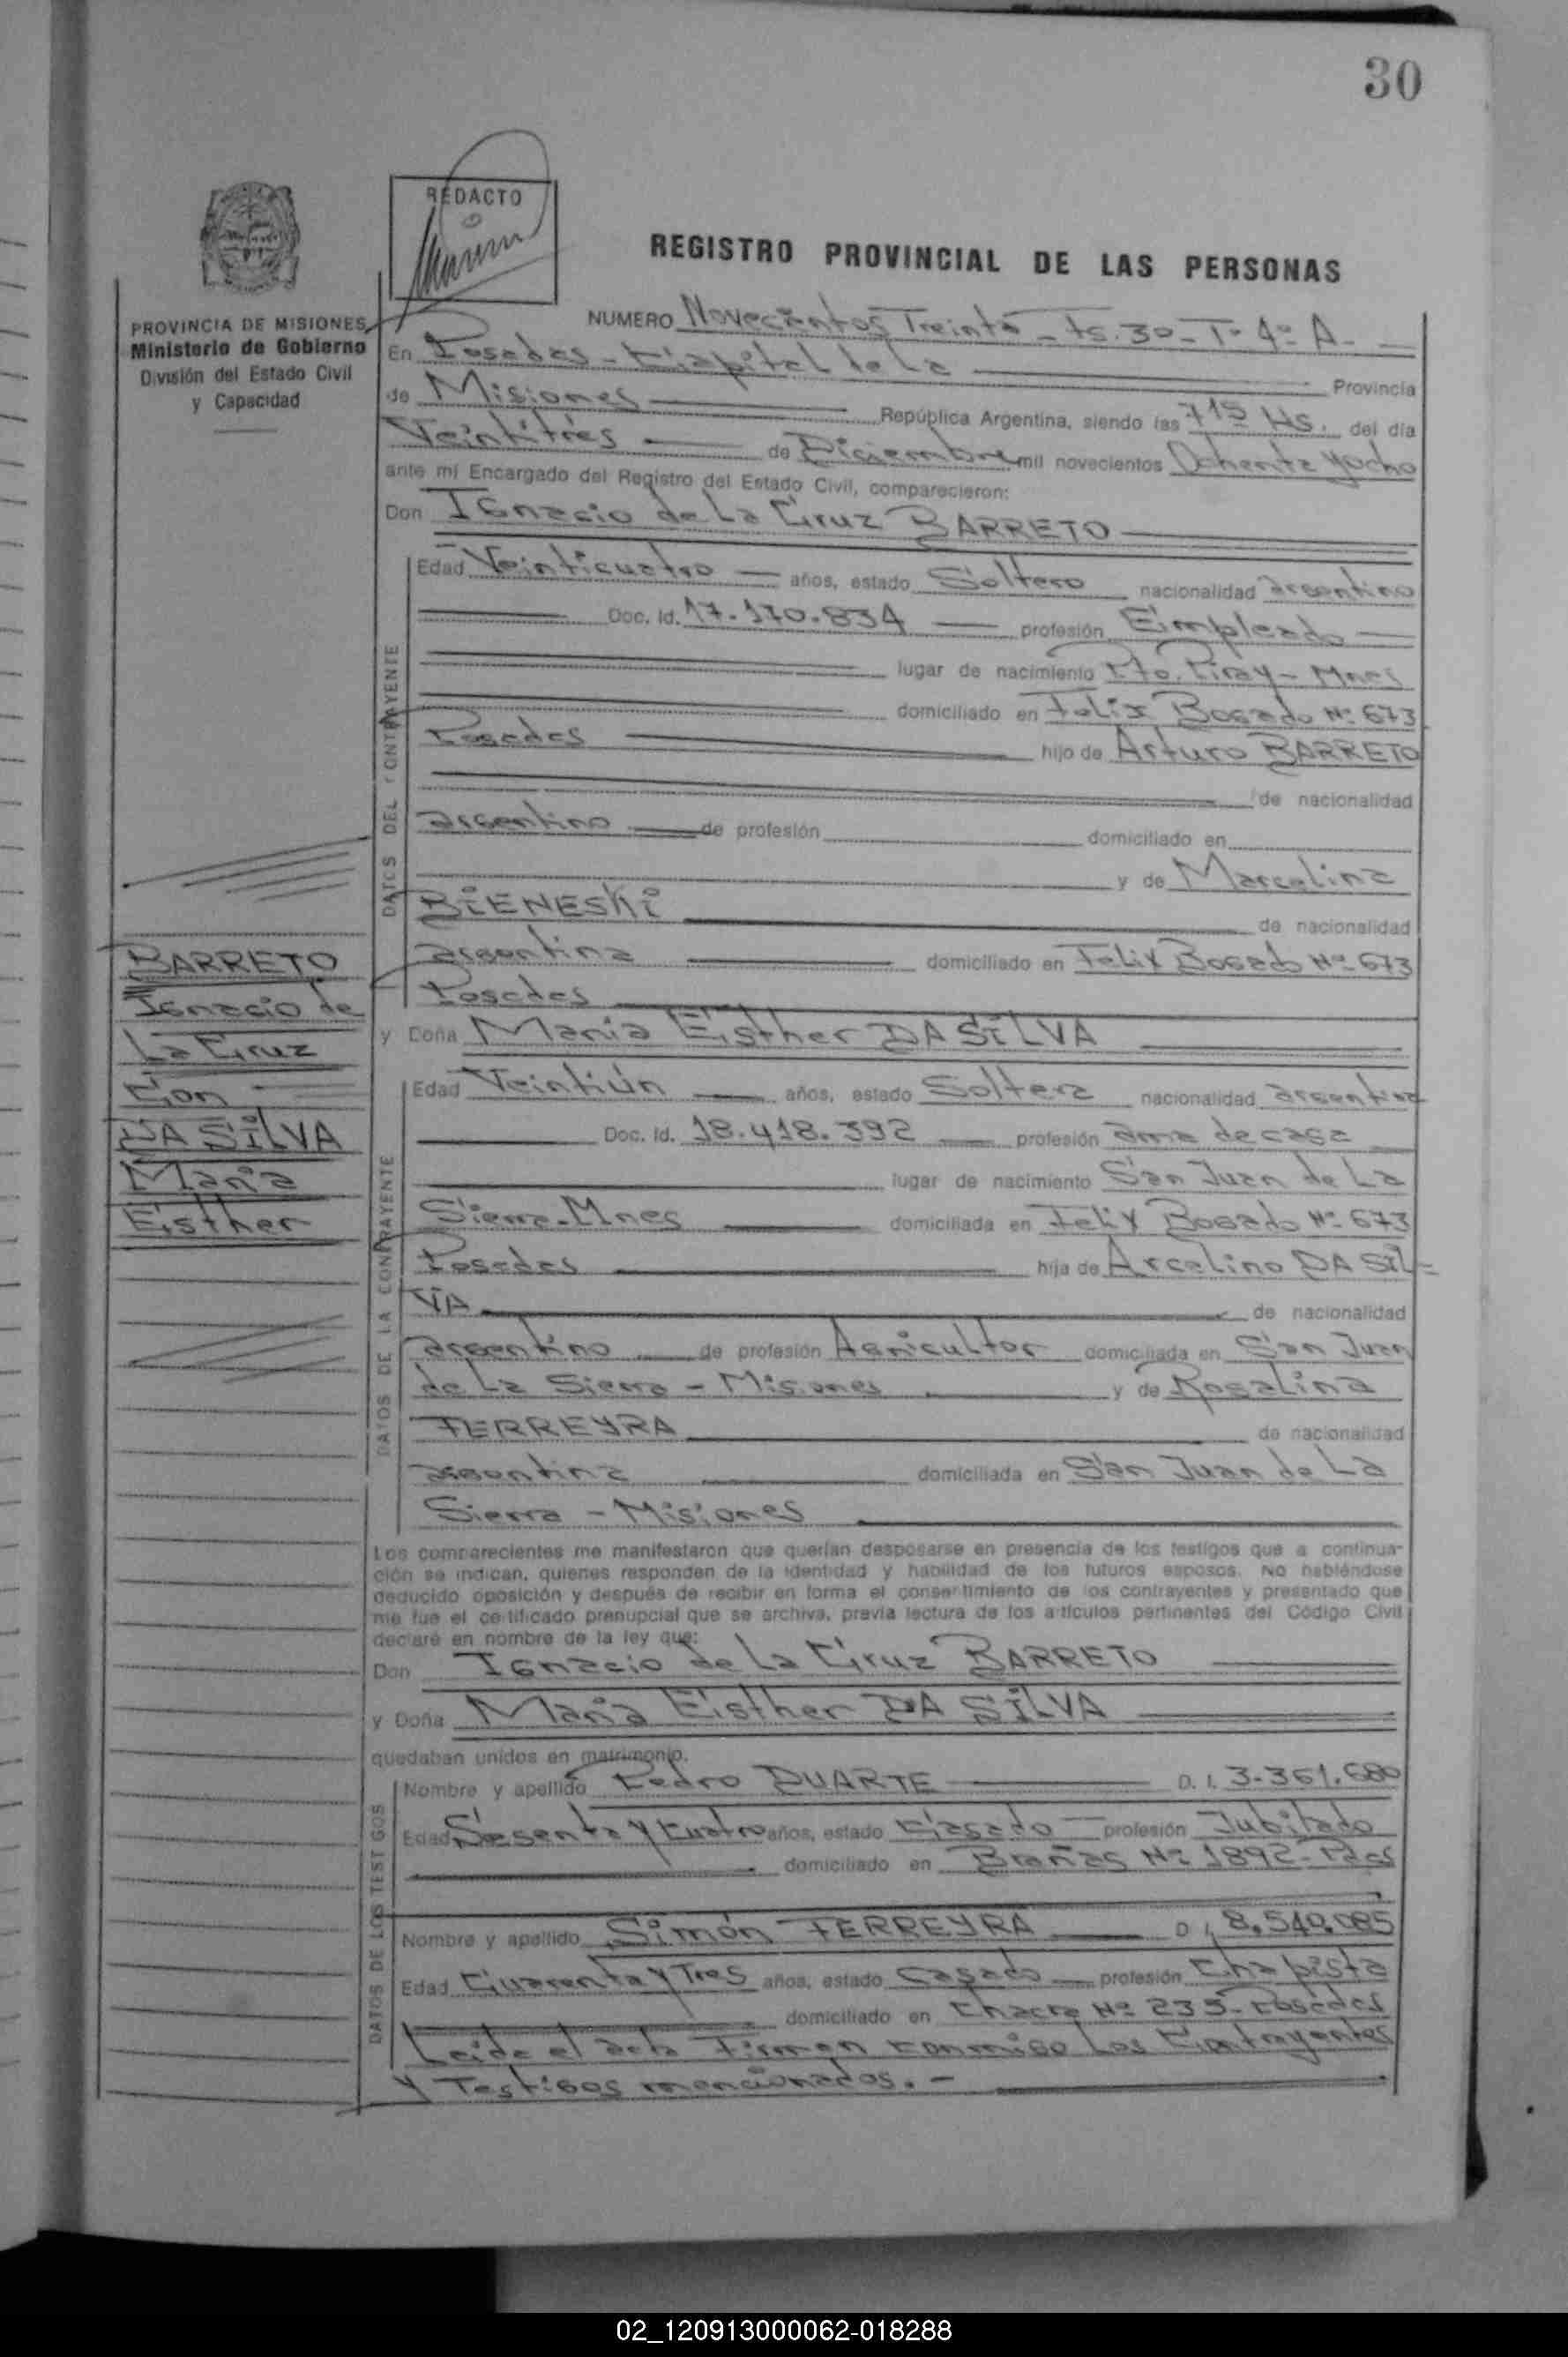 30
REDACTO
REGISTRO PROVINCIAL DE LAS PERSONAS
PROVINCIA DE MISIONES
Ministerio de Gobierno
División del Estado Civil
y Capacidad
NUMERO Novecientos Treinta - Fs. 30 - Tº 4º A -
En Posadas - Capital de La Provincia
de Misiones República Argentina, siendo las 7 15 Hs. del día
Veintitrés de Diciembre mil novecientos Ochenta y ocho
ante mi Encargado del Registro del Estado Civil, comparecieron:
Don Ignacio de La Cruz BARRETO
DATOS DEL CONTRAYENTE
Edad Veinticuatro años, estado Soltero nacionalidad argentino
Doc. Id. 17.170.834 profesión Empleado
lugar de nacimiento Pto. Piray - Mnes
domiciliado en Felix Bogado Nº 673
Posadas hijo de Arturo BARRETO
de nacionalidad
argentino de profesión domiciliado en
y de Marcelina
BIENESKI de nacionalidad
argentina domiciliado en Felix Bogado Nº 673
Posadas
BARRETO
Ignacio de
La Cruz
Con
DA SILVA
Maria
Esther
y Doña Maria Esther DA SILVA
DATOS DE LA CONTRAYENTE
Edad Veintiún años, estado Soltera nacionalidad argentina
Doc. Id. 18.418.392 profesión ama de casa
lugar de nacimiento San Juan de La
Sierra - Mnes domiciliada en Felix Bogado Nº 673
Posadas hija de Arcelino DA SIL=
VA de nacionalidad
argentino de profesión Agricultor domiciliada en San Juan
de La Sierra - Misiones y de Rosalina
FERREYRA de nacionalidad
argentina domiciliada en San Juan de La
Sierra - Misiones
Los comparecientes me manifestaron que querían desposarse en presencia de los testigos que a continua-
ción se indican, quienes responden de la identidad y habilidad de los futuros esposos. No habiéndose
deducido oposición y después de recibir en forma el consentimiento de los contrayentes y presentado que
me fue el certificado prenupcial que se archiva, previa lectura de los artículos pertinentes del Código Civil
declaré en nombre de la ley que:
Don Ignacio de La Cruz BARRETO
y Doña Maria Esther DA SILVA
quedaban unidos en matrimonio.
DATOS DE LOS TESTIGOS
Nombre y apellido Pedro DUARTE D. I. 3.361.680
Edad Sesenta y Cuatro años, estado Casado profesión Jubilado
domiciliado en Brañas Nº 1892 - Pdas
Nombre y apellido Simón FERREYRA D. I. 8.540.085
Edad Cuarenta y Tres años, estado Casado profesión Chapista
domiciliado en Chacra Nº 235 - Posadas
Leida el acta Firman conmigo Los Contrayentes
y Testigos mencionados. -
02_120913000062-018288